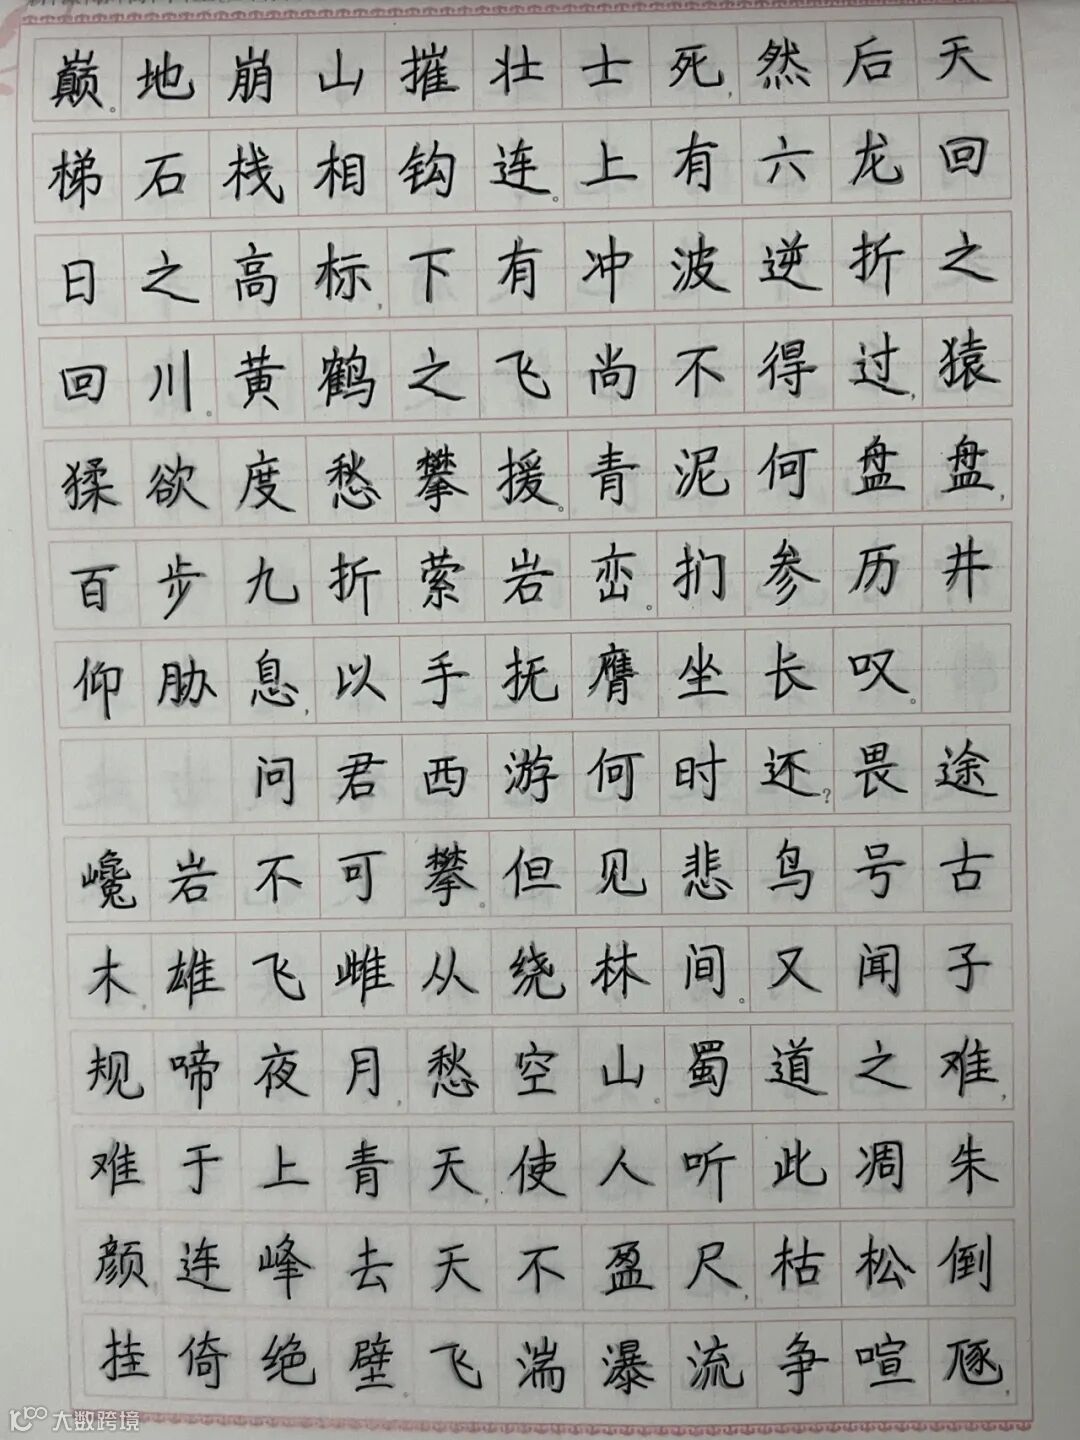 巅。地崩山摧壮士死,然后天
梯石栈相钩连。上有六龙回
日之高标,下有冲波逆折之
回川。黄鹤之飞尚不得过,猿
猱欲度愁攀援。青泥何盘盘,
百步九折萦岩峦。扪参历井
仰胁息,以手抚膺坐长叹。
问君西游何时还?畏途
巉岩不可攀。但见悲鸟号古
木,雄飞雌从绕林间。又闻子
规啼夜月,愁空山。蜀道之难,
难于上青天,使人听此凋朱
颜。连峰去天不盈尺,枯松倒
挂倚绝壁。飞湍瀑流争喧豗,
大数跨境